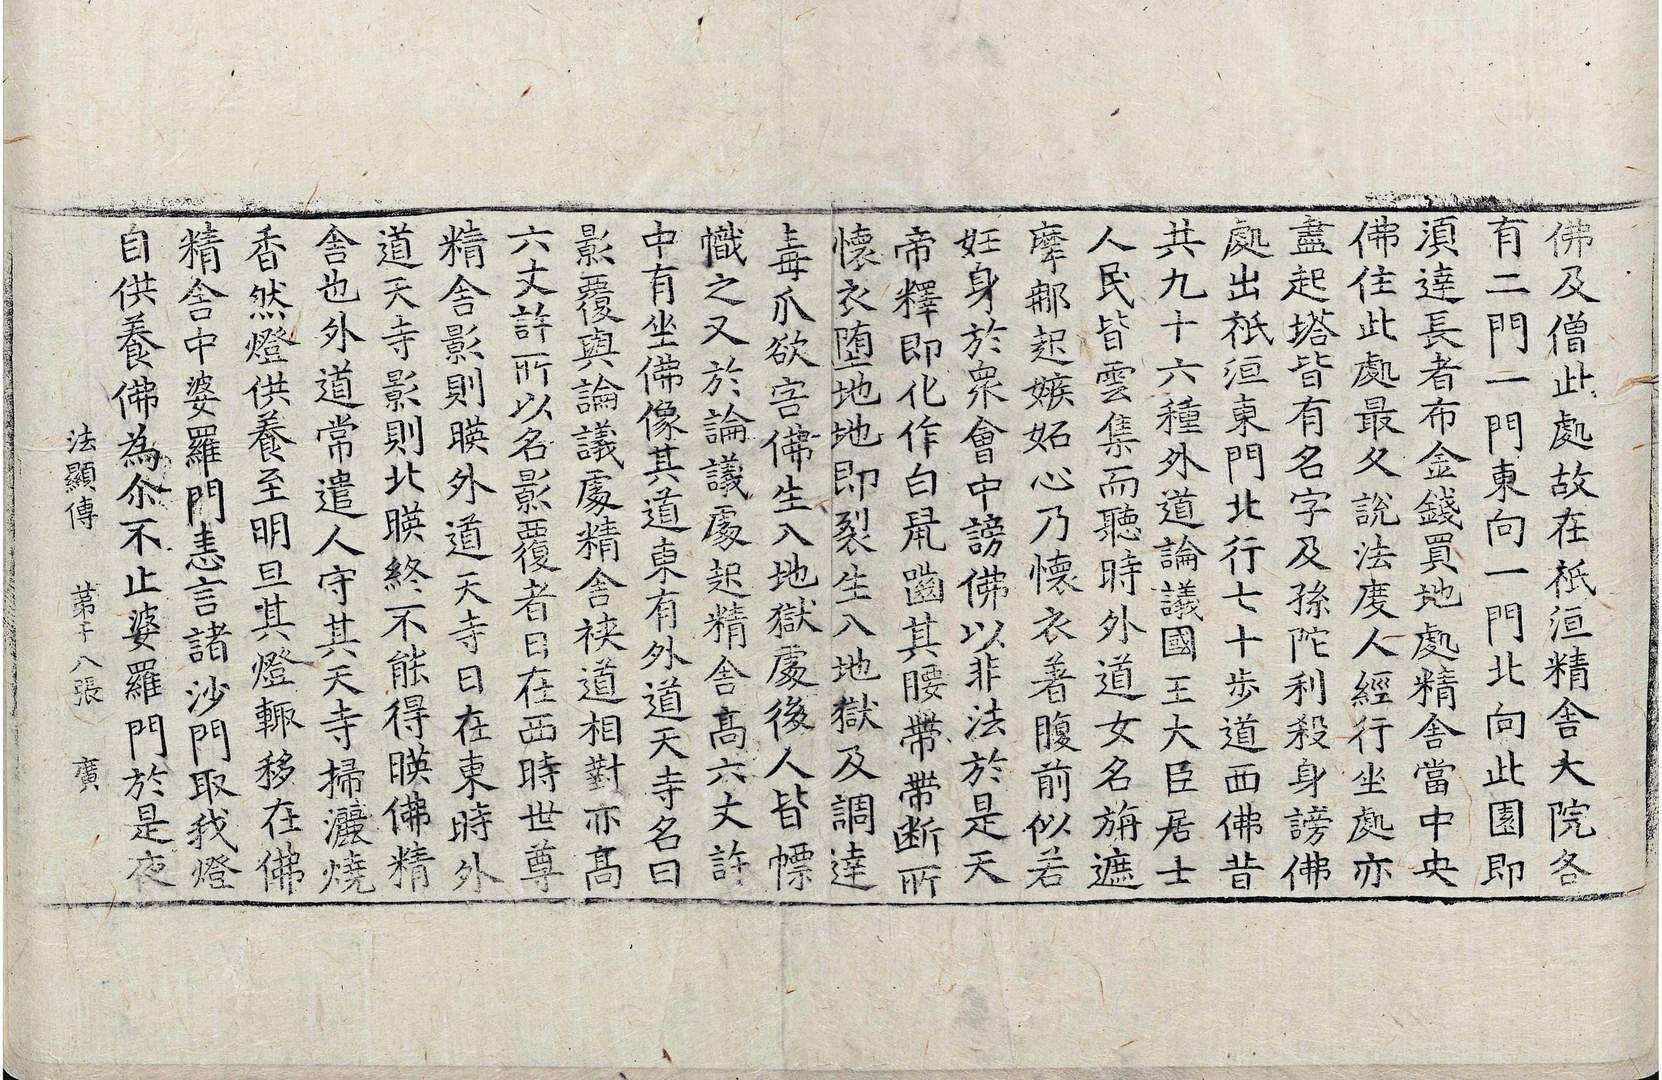 佛及僧此處故在祇洹精舍大院各
有二門一門東向一門北向此園即
湏達長者布金錢買地處精舍當中央
佛住此處最久說法度人經行坐處亦
盡起塔皆有名字及孫陀利殺身謗佛
處出祇洹東門北行七十步道西佛昔
共九十六種外道論議國王大臣居士
人民皆雲集而聽時外道女名旃遮
摩那起嫉妬心乃懷衣著腹前似若
妊身於衆會中謗佛以非法於是天
帝釋即化作白鼠齧其腰帶帶断所
懷衣墮地地即裂生入地獄及調達
毒爪欲害佛生入地獄處後人皆幖
幟之又於論議處起精舍高六丈許
中有坐佛像其道東有外道天寺名曰
影覆與論議處精舍裌道相對亦高
六丈許所以名影覆者日在西時世尊
精舍影則暎外道天寺日在東時外
道天寺影則北暎終不能得暎佛精
舍也外道常遣人守其天寺掃灑燒
香然燈供養至明旦其燈輙移在佛
精舍中婆羅門恚言諸沙門取我燈
自供養佛為尒不止婆羅門於是夜
法顯傳 苐十八張 廣